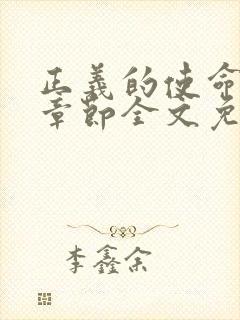 正義的使命
章節全文免
李鑫余